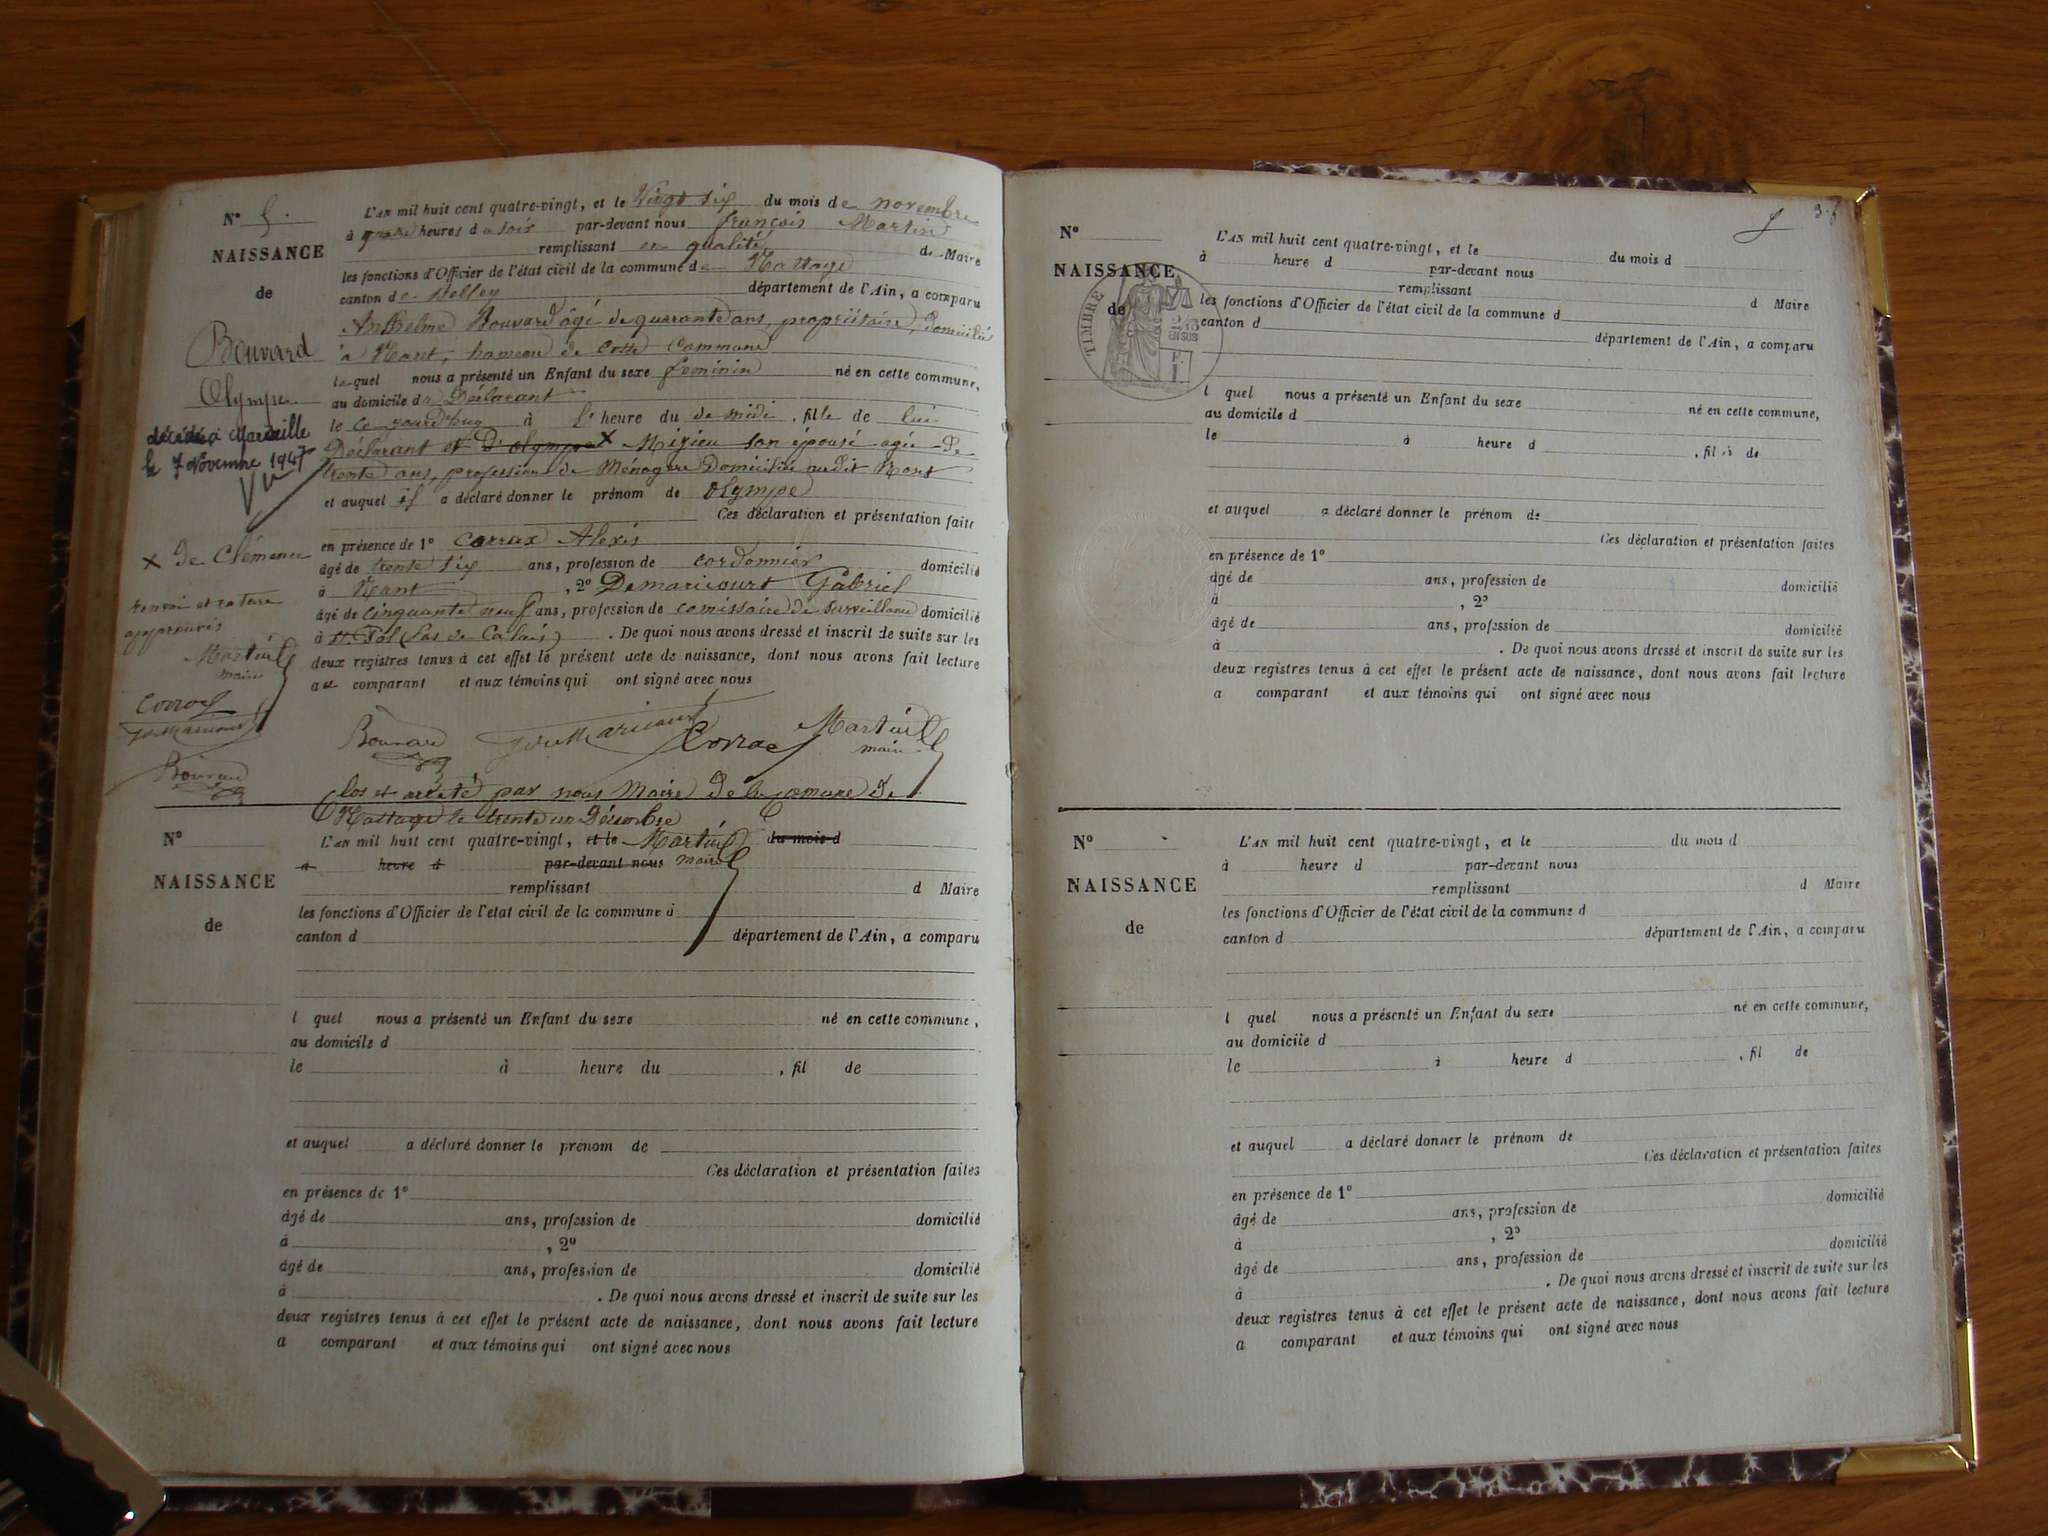 N° 5.
NAISSANCE
de
Bouvard
Olympe
décédée à Marseille
le 7 Novembre 1947
Vu
x de Clémence
renvoi et rature
approuvés
Martin
maire
Bouvard
L'AN mil huit cent quatre-vingt, et le Vingt six du mois de novembre
à quatre heures du soir par-devant nous françois Martin
remplissant en qualité de Maire
les fonctions d'Officier de l'état civil de la commune de Nattage
canton de Belley département de l'Ain, a comparu
Anthelme Bouvard âgé de quarante ans, propriétaire, domicilié
à Nant, hameau de cette Commune
lequel nous a présenté un Enfant du sexe féminin né en cette commune,
au domicile du Déclarant
le ce jourd'huy à 1e heure du de midi, fille de lui
Déclarant et D'olympe x Mizieu son épouse agée de
trente ans, profession de Ménagère Domiciliée audit Nant
et auquel il a déclaré donner le prénom de olympe
Ces déclaration et présentation faites
en présence de 1° Carrax Alexis
âgé de trente six ans, profession de cordonnier domicilié
à Nant, 2° Demaricourt Gabriel
âgé de cinquante neuf ans, profession de comissaire de surveillance domicilié
à St Pol (Pas de Calais). De quoi nous avons dressé et inscrit de suite sur les
deux registres tenus à cet effet le présent acte de naissance, dont nous avons fait lecture
au comparant et aux témoins qui ont signé avec nous
Bouvard Martin
maire
Clos et arrêté par nous Maire de la comune de
Nattage le trente un Décembre
N°
NAISSANCE
de
L'AN mil huit cent quatre-vingt, et le Martin du mois d
à heure d par-devant nous maire
remplissant d Maire
les fonctions d'Officier de l'état civil de la commune d
canton d département de l'Ain, a comparu
l quel nous a présenté un Enfant du sexe né en cette commune,
au domicile d
le à heure du , fil de
et auquel a déclaré donner le prénom de
Ces déclaration et présentation faites
en présence de 1°
âgé de ans, profession de domicilié
à , 2°
âgé de ans, profession de domicilié
à . De quoi nous avons dressé et inscrit de suite sur les
deux registres tenus à cet effet le présent acte de naissance, dont nous avons fait lecture
a comparant et aux témoins qui ont signé avec nous
N°
NAISSANCE
de
TIMBRE
L'AN mil huit cent quatre-vingt, et le du mois d
à heure d par-devant nous
remplissant d Maire
les fonctions d'Officier de l'état civil de la commune d
canton d département de l'Ain, a comparu
l quel nous a présenté un Enfant du sexe né en cette commune,
au domicile d
le à heure d , fil de
et auquel a déclaré donner le prénom de
Ces déclaration et présentation faites
en présence de 1°
âgé de ans, profession de domicilié
à , 2°
âgé de ans, profession de domicilié
à . De quoi nous avons dressé et inscrit de suite sur les
deux registres tenus à cet effet le présent acte de naissance, dont nous avons fait lecture
a comparant et aux témoins qui ont signé avec nous
N°
NAISSANCE
de
L'AN mil huit cent quatre-vingt, et le du mois d
à heure d par-devant nous
remplissant d Maire
les fonctions d'Officier de l'état civil de la commune d
canton d département de l'Ain, a comparu
l quel nous a présenté un Enfant du sexe né en cette commune,
au domicile d
le à heure d , fil de
et auquel a déclaré donner le prénom de
Ces déclaration et présentation faites
en présence de 1°
âgé de ans, profession de domicilié
à , 2°
âgé de ans, profession de domicilié
à . De quoi nous avons dressé et inscrit de suite sur les
deux registres tenus à cet effet le présent acte de naissance, dont nous avons fait lecture
a comparant et aux témoins qui ont signé avec nous